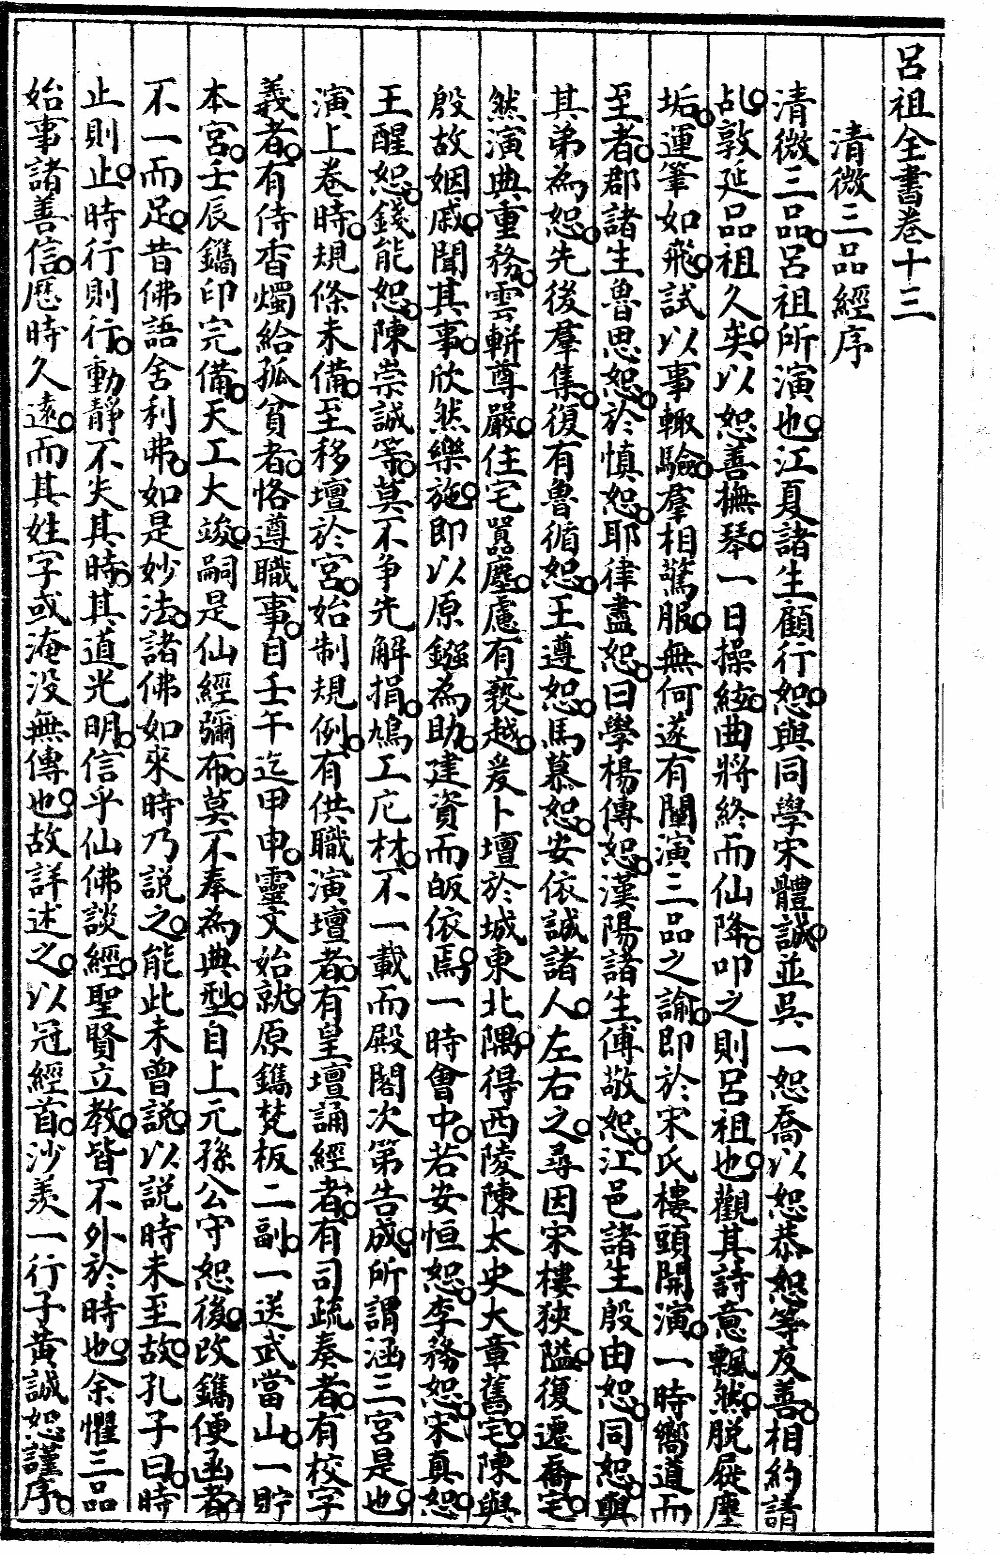 呂祖全書卷十三
清微三品經序
清微三品呂祖所演也江夏諸生顧行恕與同學宋體誠並吳一恕喬以恕恭恕等友善相約請
乩敦延品祖久矣以恕善撫琴一日操絃曲將終而仙降叩之則呂祖也觀其詩意飄然脫屣塵
垢運筆如飛試以事輙驗羣相驚服無何遂有闡演三品之諭即於宋氏樓頭開演一時嚮道而
至者郡諸生魯思恕於慎恕耶律盡恕曰學楊傳恕漢陽諸生傅敬恕江邑諸生殷由恕同恕與
其弟為恕先後羣集復有魯循恕王遵恕馬慕恕安依誠諸人左右之尋因宋樓狹隘復遷喬宅
然演典重務雲軿尊嚴住宅囂塵慮有褻越爰卜壇於城東北隅得西陵陳太史大章舊宅陳與
殷故姻戚聞其事欣然樂施即以原鏹為助建資而皈依焉一時會中若安恒恕李務恕宋真恕
王醒恕錢能恕陳崇誠等莫不爭先解捐鳩工庀材不一載而殿閣次第告成所謂涵三宮是也
演上卷時規條未備至移壇於宮始制規例有供職演壇者有皇壇誦經者有司疏奏者有校字
義者有侍香燭給孤貧者恪遵職事自壬午迄甲申靈文始就原鐫梵板二副一送武當山一貯
本宮壬辰鐫印完備天工大竣嗣是仙經彌布莫不奉為典型自上元孫公守恕後改鐫便函者
不一而足昔佛語舍利弗如是妙法諸佛如來時乃說之能此未曾說以說時未至故孔子曰時
止則止時行則行動靜不失其時其道光明信乎仙佛談經聖賢立教皆不外於時也余懼三品
始事諸善信歷時久遠而其姓字或淹沒無傳也故詳述之以冠經首沙羨一行子黃誠恕謹序